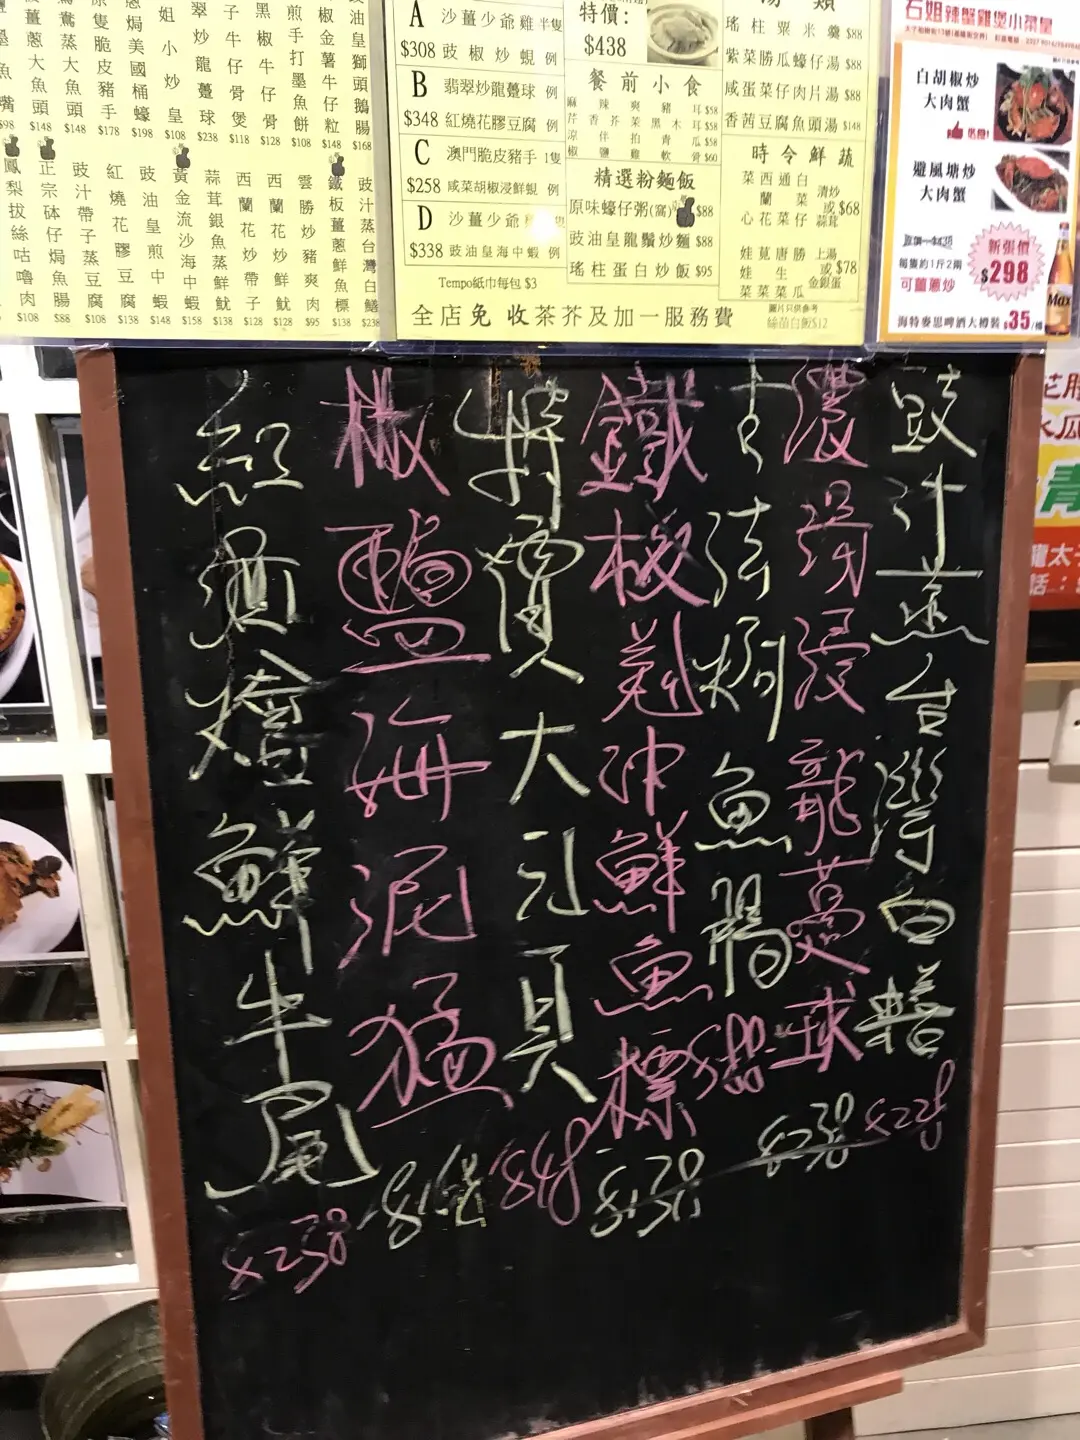 豉汁蒸台灣白鱔 $228
濃湯浸龍躉球 $238
古法焗魚腸 $88
鐵板羌沖鮮魚標 $138
特價大元貝 $48
椒鹽海泥猛
紅酒燴鮮牛尾 $238
A 沙薑少爺雞 半隻
$308 豉椒炒蜆 例
B 翡翠炒龍躉球 例
$348 紅燒花膠豆腐 例
C 澳門脆皮豬手 1隻
$258 咸菜胡椒浸鮮蜆 例
D 沙薑少爺
$338 豉油皇海中蝦 例
Tempo紙巾每包 $3
特價:
$438
餐前小食
麻辣爽豬耳 $58
芹香芥菜黑木耳 $58
涼伴拍青瓜 $58
椒鹽雞軟骨 $60
精選粉麵飯
原味蠔仔粥(窩) $88
豉油皇龍鬚炒麵 $88
瑤柱蛋白炒飯 $95
瑤柱粟米羹 $88
紫菜勝瓜蠔仔湯 $88
咸蛋菜仔肉片湯 $88
香茜豆腐魚頭湯 $148
時令鮮蔬
菜心 西蘭花 通菜 白菜仔 清炒或蒜茸 $68
娃娃菜 莧菜 唐生菜 勝瓜 上湯或金銀蛋 $78
圖片只供參考
絲苗白飯 $12
全店免收茶芥及加一服務費
石姐辣蟹雞煲小菜皇
白胡椒炒
大肉蟹
避風塘炒
大肉蟹
每隻約1斤2兩
可薑蔥炒
新張價
$298
海特麥思啤酒大樽裝 $35/樽
Max
豉油皇獅頭鵝腸 $168
椒金薯牛仔粒 $148
煎手打墨魚餅 $108
黑椒牛仔骨 $128
子牛仔骨煲 $118
翠炒龍躉球 $238
姐小炒皇 $108
焗美國桶蠔 $198
隻脆皮豬手 $178
蒸大魚頭 $148
薑蔥大魚頭 $148
豉汁蒸台灣白鱔 $238
鐵板薑蔥鮮魚標 $138
雲勝炒豬爽肉 $95
西蘭花炒鮮魷 $128
西蘭花炒帶子 $128
蒜茸銀魚蒸鮮魷 $118
黃金流沙海中蝦 $158
豉油皇煎中蝦 $148
紅燒花膠豆腐 $138
豉汁帶子蒸豆腐 $108
正宗砵仔焗魚腸 $88
鳳梨拔絲咕嚕肉 $108